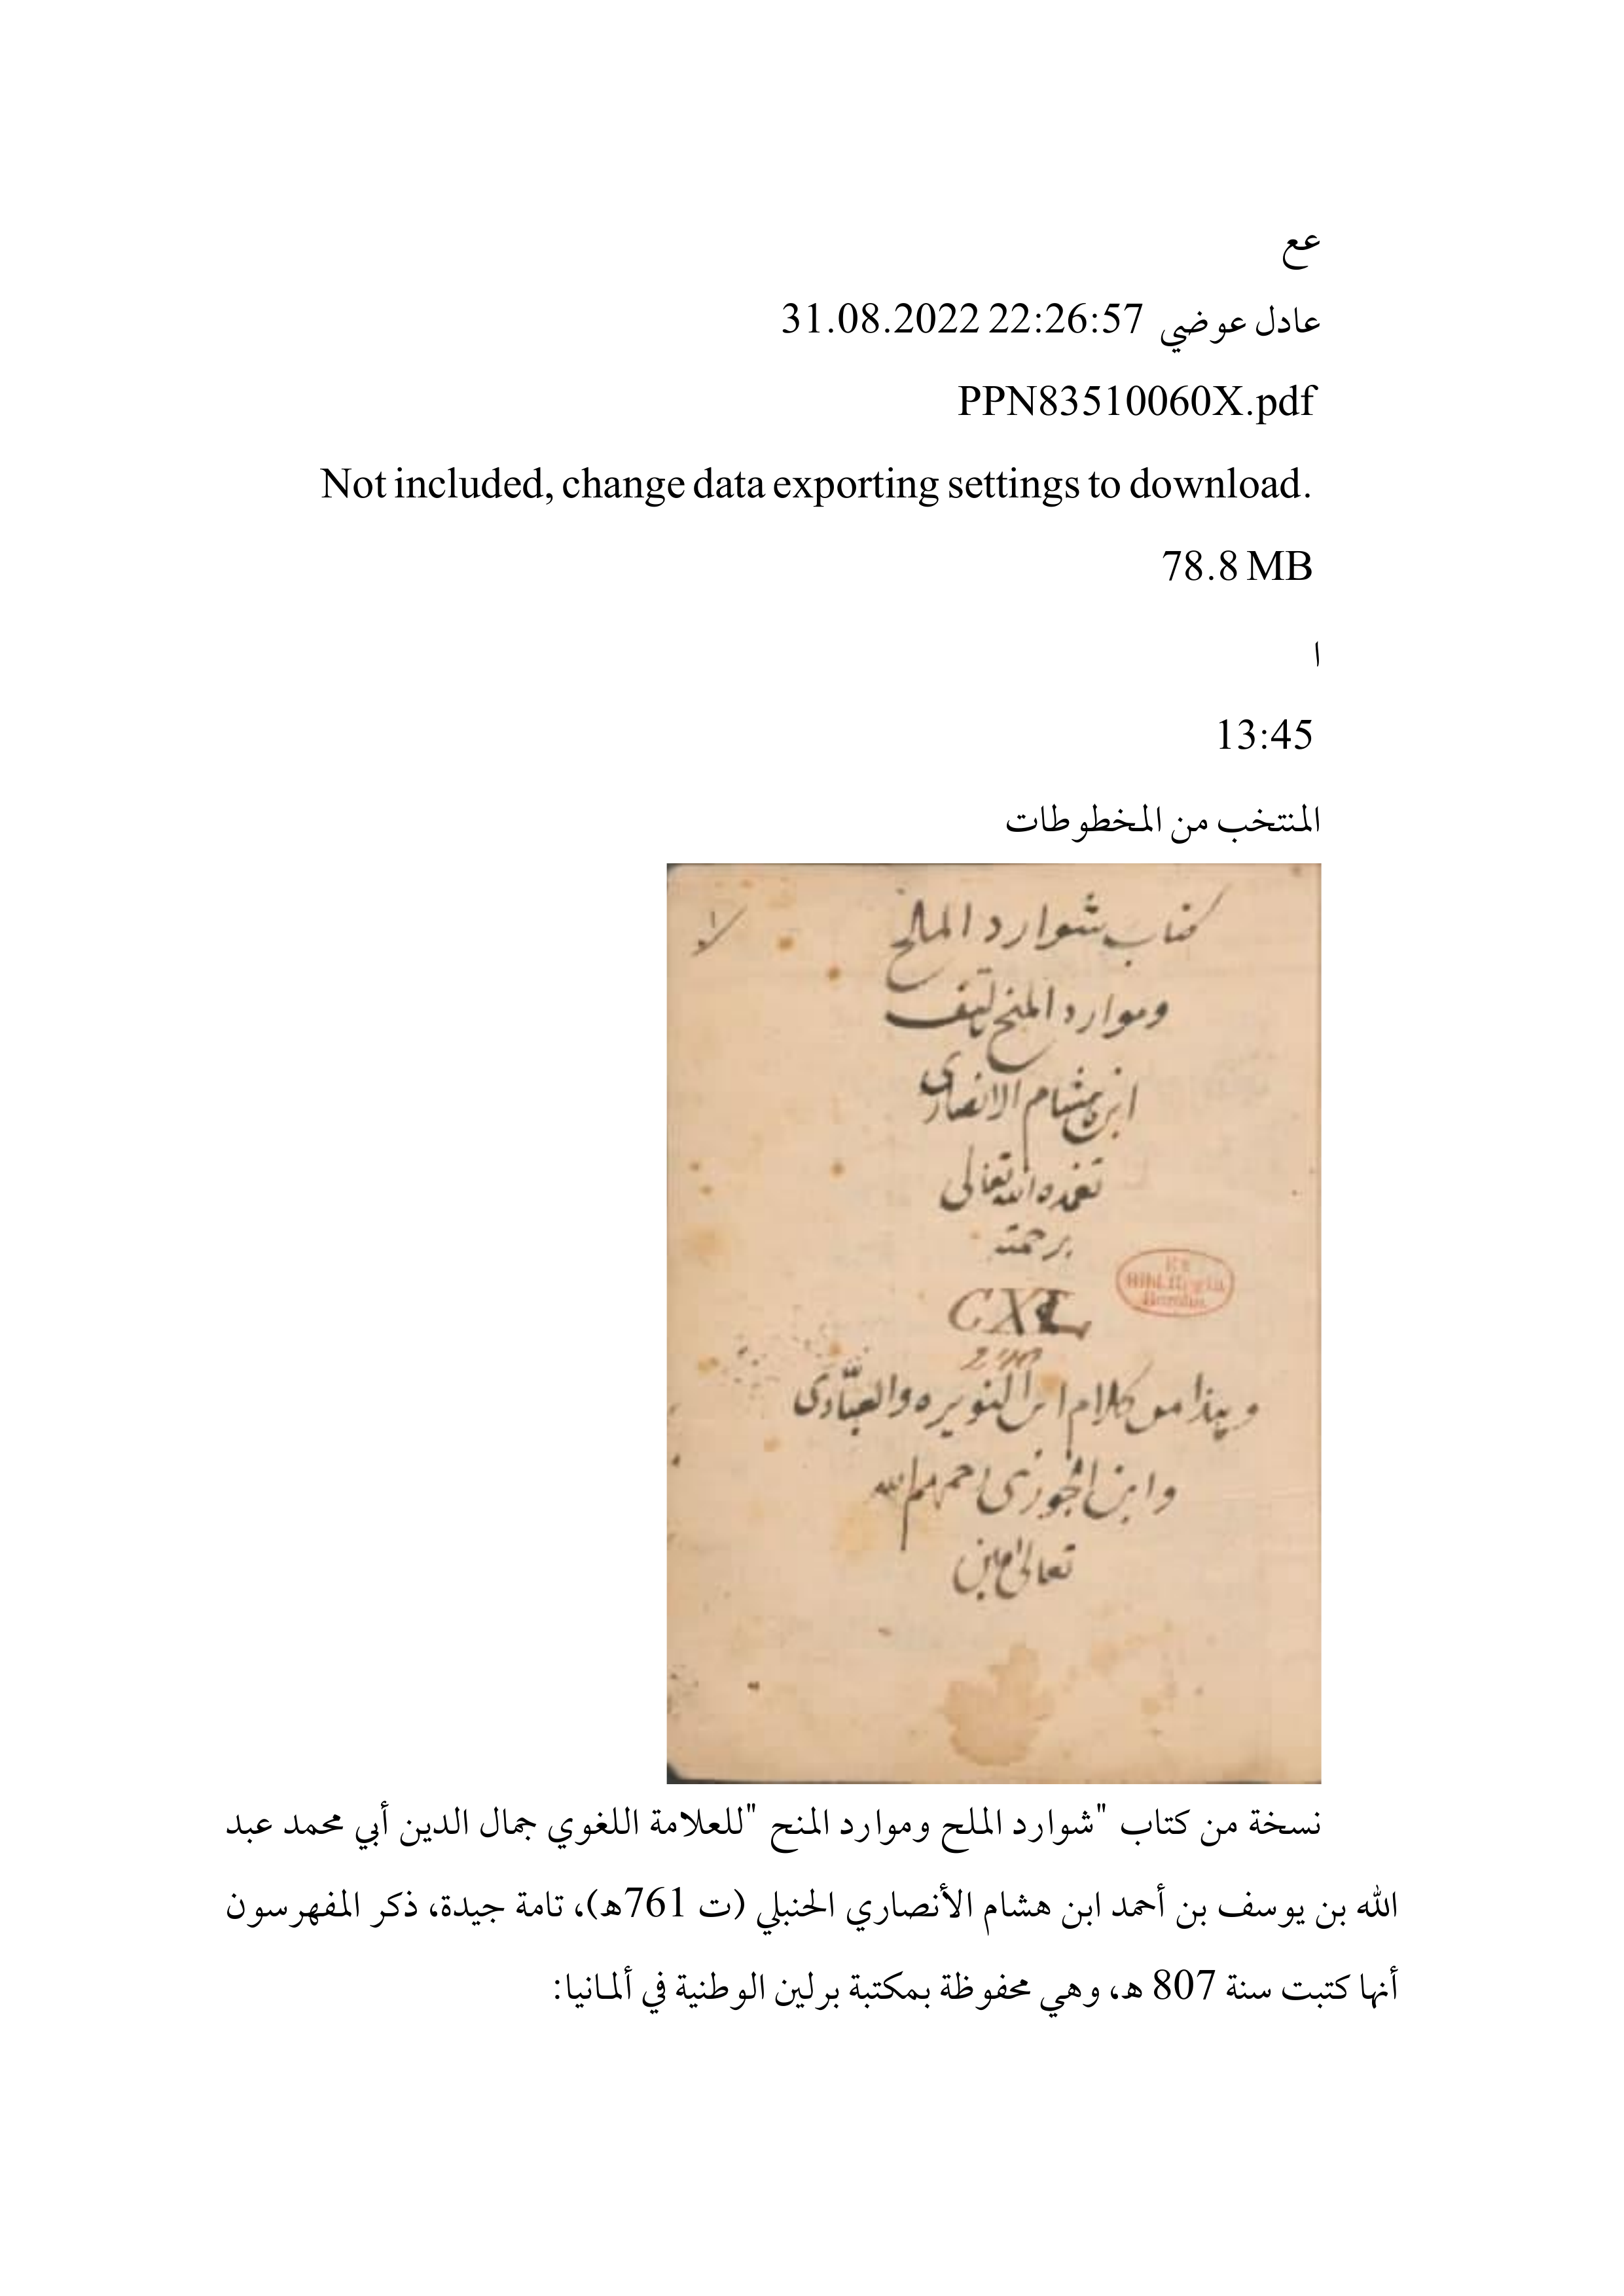 عع
عادل عوضي 31.08.2022 22:26:57
PPN83510060X.pdf
Not included, change data exporting settings to download.
78.8 MB
ا
13:45
المنتخب من المخطوطات
كتاب شوارد الملح
وموارد المنح تاليف
ابن هشام الانصاری
تغمده الله تعالى
برحمته
Ex Bibl. Regia Berolin.
CXL
وهذا من كلام ابن النويره والعبّادی
وابن الجوزی رحمهم الله
تعالى امين
نسخة من كتاب "شوارد الملح وموارد المنح "للعلامة اللغوي جمال الدين أبي محمد عبد
الله بن يوسف بن أحمد ابن هشام الأنصاري الحنبلي (ت 761ه)، تامة جيدة، ذكر المفهرسون
أنها كتبت سنة 807 ه، وهي محفوظة بمكتبة برلين الوطنية في ألمانيا: